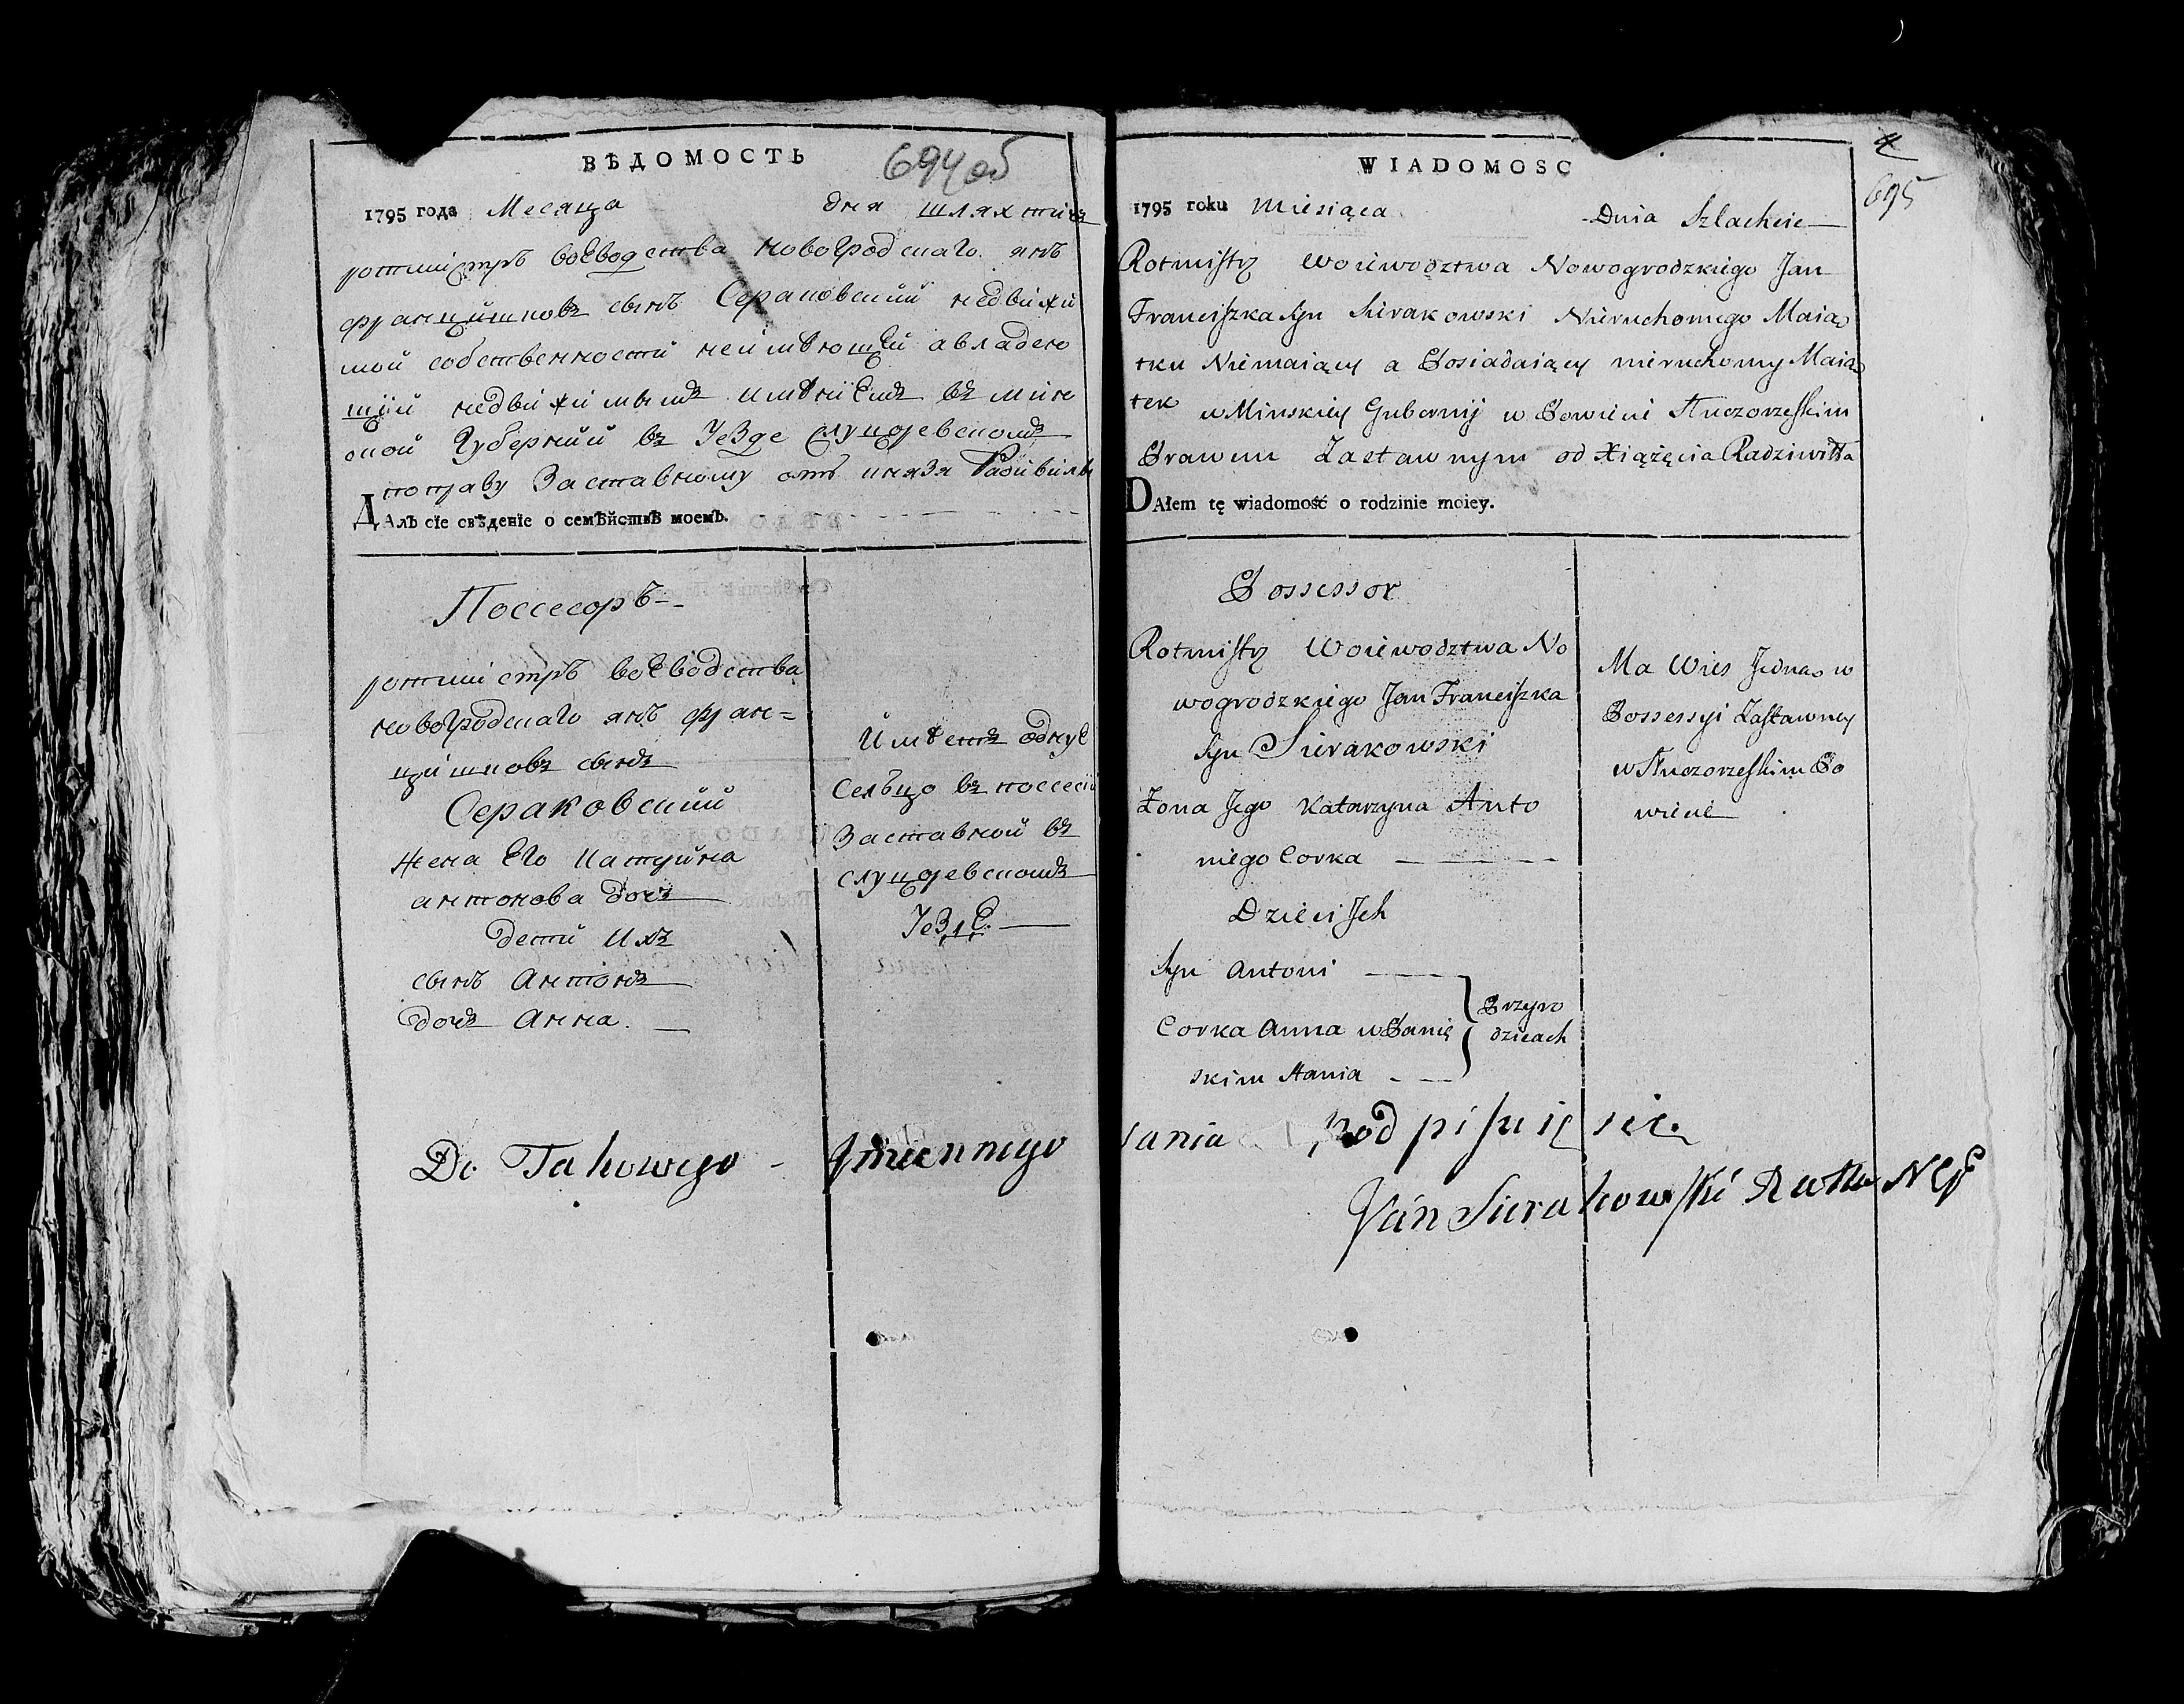 ВѢДОМОСТЬ
694 об
1795 года Месяца дня шляхтичъ
ротмистръ воеводства новогродскаго янъ
францишковъ сынъ Сераковский недвижи
мой собственности неимѣющей авладею
щий недвижимымъ имѣниемъ въ минс
ской Губерний въ Уезде слуцоревскомъ
поправу Заставному отъ князя Радивила
ДАлъ сїе свѣденїе о семѣйствѣ моемъ.
Поссесоръ
ротмистръ воеводства
новогродскаго янъ фран=
цишковъ сынъ
Сераковский
жена Его Катрина
антонова дочь
дети Ихъ
сынъ Антонъ
дочь Анна.
Имѣетъ одну
сельцо въ поссесіи
Заставной въ
слуцоревскомъ
Уезде.
Do Takowego Imiennego
WIADOMOSC
4
695
1795 roku Miesiąca Dnia Szlachcic
Rotmistrz Woiewodztwa Nowogrodzkiego Jan
Franciszka Syn Sierakowski Nieruchomego Maią
tku Niemaiący a Posiadaiący nieruchomy Maią
tek w Minskiey Gubernij w Powiecie Słuczorzeskim
Prawem Zastawnym od Xiążęcia Radziwiłła
DAłem tę wiadomość o rodzinie moiey.
Possessor
Rotmistrz Woiewodztwa No
wogrodzkiego Jan Franciszka
Syn Sierakowski
Żona Jego Katarzyna Anto
niego Corka
Dzieci Jch
Syn Antoni
Corka Anna w Panię
skim Stania
Przyro
dzicach
Ma Wies Jedną w
Possessyi Zastawney
w Słuczorzeskim Po
wiecie
sania podpisuię się.
Jan Sierakowski